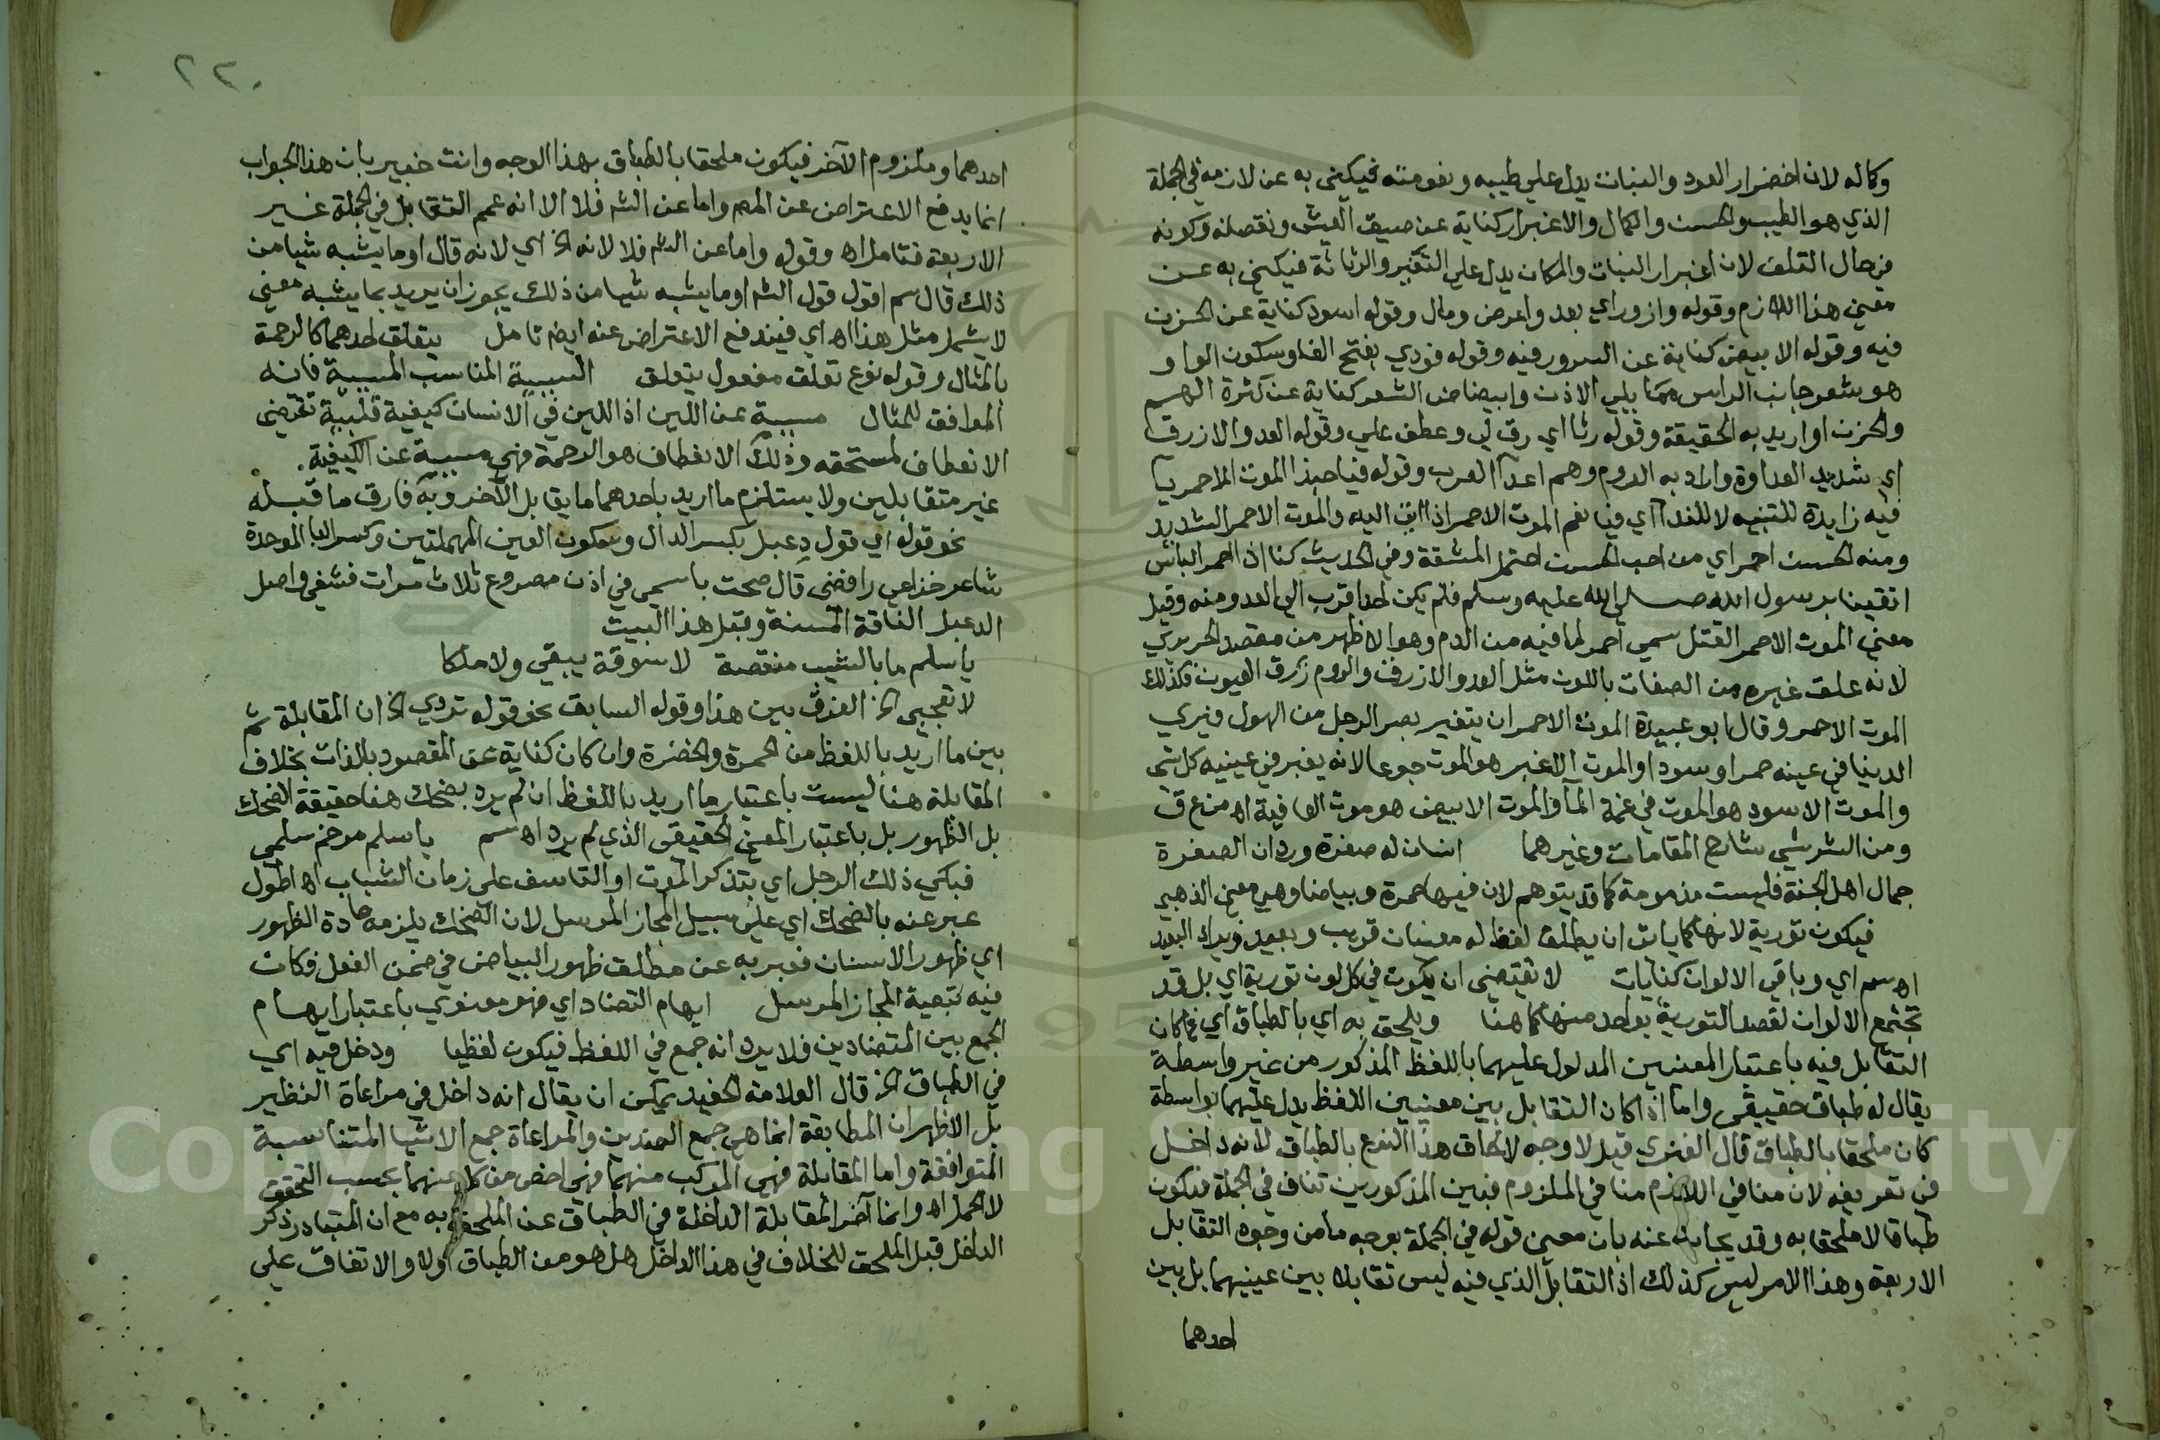 وكماله لان اخضرار العود والنبات يدل على طيبه ونعومته فيكنى به عن لازمه في الجملة
الذي هو الطيب والحسن والكمال والاغبرار كناية عن ضيق العيش ونقصانه وكونه
في حال التلف لان اغبرار النبات والمكان يدل على التغير والرثاثة فيكنى به عن
معنى هذا اللازم وقوله وازور اي بعد واعرض ومال وقوله اسود كناية عن الحزن
فيه وقوله الابيض كناية عن السرور فيه وقوله فودي بفتح الفا وسكون الواو
هو شعر جانب الراس مما يلي الاذن وابيضاض الشعر كناية عن كثرة الهم
والحزن او اريد به الحقيقة وقوله رثا اي رق لي وعطف علي وقوله العدو الازرق
اي شديد العداوة واراد به الروم وهم اعدآ العرب وقوله فيا حبذا الموت الاحمر يا
فيه زايدة للتنبيه لا للندآ اي فيا نعم الموت الاحمر اذا اتى اليه والموت الاحمر الشديد
ومنه الحسن احمر اي من احب الحسن احتمل المشقة وفي الحديث كنا اذا احمر الباس
اتقينا برسول الله صلى الله عليه وسلم فلم يكن احدا قرب الى العدو منه وقيل
معنى الموت الاحمر القتل سمي احمر لما فيه من الدم وهو الاظهر من مقصد الحريري
لانه علق غيره من الصفات باللون مثل العدو الازرق والروم زرق العيون فكذلك
الموت الاحمر وقال ابو عبيدة الموت الاحمر ان يتغير بصر الرجل من الهول فيري
الدنيا في عينه حمرا وسودا والموت الاغبر هو الموت جوعا لانه يغبر في عينيه كل شي
والموت الاسود هو الموت في غمة المآ والموت الابيض هو موت العافية اه من ع ق
ومن الشريشي شارح المقامات وغيرهما انسان له صفرة ورد ان الصفرة
جمال اهل الجنة فليست مذمومة كما قد يتوهم لان فيها حمرة وبياضا وهي معنى الذهبي
فيكون تورية لانها كما ياتي ان يطلق لفظ له معنيان قريب وبعيد ويراد البعيد
اه سم اي وباقي الالوان كنايات لا تقتضي ان يكون في كل لون تورية اي بل قد
تجتمع الالوان لقصد التورية بواحد منها كما هنا ويلحق به اي بالطباق اي فما كان
التقابل فيه باعتبار المعنيين المدلول عليهما باللفظ المذكور من غير واسطة
يقال له طباق حقيقي واما اذا كان التقابل بين معنيين اللفظ يدل عليهما بواسطة
كان ملحقا بالطباق قال الفنري قيل لا وجه لالحاق هذا النوع بالطباق لانه داخل
في تعريفه لان منافي اللازم منافي الملزوم فبين المذكورين تناف في الجملة فيكون
طباقا لا ملحقا به وقد يجاب عنه بان معنى قوله في الجملة بوجه ما من وجوه التقابل
الاربعة وهذا الامر ليس كذلك اذ التقابل الذي فيه ليس تقابلا بين عينيهما بل بين
احدهما
٢٢٠
احدهما وملزوم الآخر فيكون ملحقا بالطباق بهذا الوجه وانت خبير بان هذا الجواب
انما يدفع الاعتراض عن المص واما عن الش فلا الا انه عمم التقابل في الجملة غير
الاربعة فتامل اه وقوله واما عن الش فلا لانه الخ اي لانه قال او ما يشبه شيا من
ذلك قال سم اقول قول الش او ما يشبه شيا من ذلك يجوز ان يريد بما يشبه معنى
لا يشمل مثل هذا اه اي فيندفع الاعتراض عنه ايض تامل يتعلق احدهما كالرحمة
بالمثال وقوله نوع تعلق مفعول يتعلق السببية المناسب المسببية فانه
الموافق للمثال مسببة عن اللين اذ اللين في الانسان كيفية قلبية تقتضي
الانعطاف لمستحقه وذلك الانعطاف هو الرحمة فهي مسببة عن الكيفية.
غير متقابلين ولا يستلزم ما اريد باحدهما ما يقابل الآخر وبه فارق ما قبله
نحو قوله اي قول دعبل بكسر الدال وسكون العين المهملتين وكسر البا الموحدة
شاعر خزاعي رافضي قال صحت باسمي في اذن مصروع ثلاث مرات فشفي واصل
الدعبل الناقة المسنة وقبل هذا البيت
يا سلم ما بالشيب منقصة لا سوقة يبقي ولا ملكا
لا تعجبي الخ الفرق بين هذا وقوله السابق نحو قوله تردي الخ ان المقابلة ثم
بين ما اريد باللفظ من الحمرة والخضرة وان كان كناية عن المقصود بالذات بخلاف
المقابلة هنا ليست باعتبار ما اريد باللفظ ان لم يرد بضحك هنا حقيقة الضحك
بل الظهور بل باعتبار المعنى الحقيقي الذي لم يرد اه سم يا سلم مرخم سلمى
فبكى ذلك الرجل اي بتذكر الموت او التاسف على زمان الشباب اه اطول
عبر عنه بالضحك اي على سبيل المجاز المرسل لان الضحك يلزمه عادة الظهور
اي ظهور الاسنان فعبر به عن مطلق ظهور البياض في ضمن الفعل فكان
فيه تبعية المجاز المرسل ايهام التضاد اي فهو معنوي باعتبار ايهام
الجمع بين المتضادين فلا يرد انه جمع في اللفظ فيكون لفظيا ودخل فيه اي
في الطباق الخ قال العلامة الحفيد يمكن ان يقال انه داخل في مراعاة النظير
بل الاظهر ان المطابقة انما هي جمع الضدين والمراعاة جمع الاشيا المتناسبة
المتوافقة واما المقابلة فهي المركب منهما فهي اخص من كل منهما بحسب التحقق
لا الحمل اه وانما آخر المقابلة الداخلة في الطباق عن الملحق به مع ان المتبادر ذكر
الداخل قبل الملحق للخلاف في هذا الداخل هل هو من الطباق اولا والاتفاق على